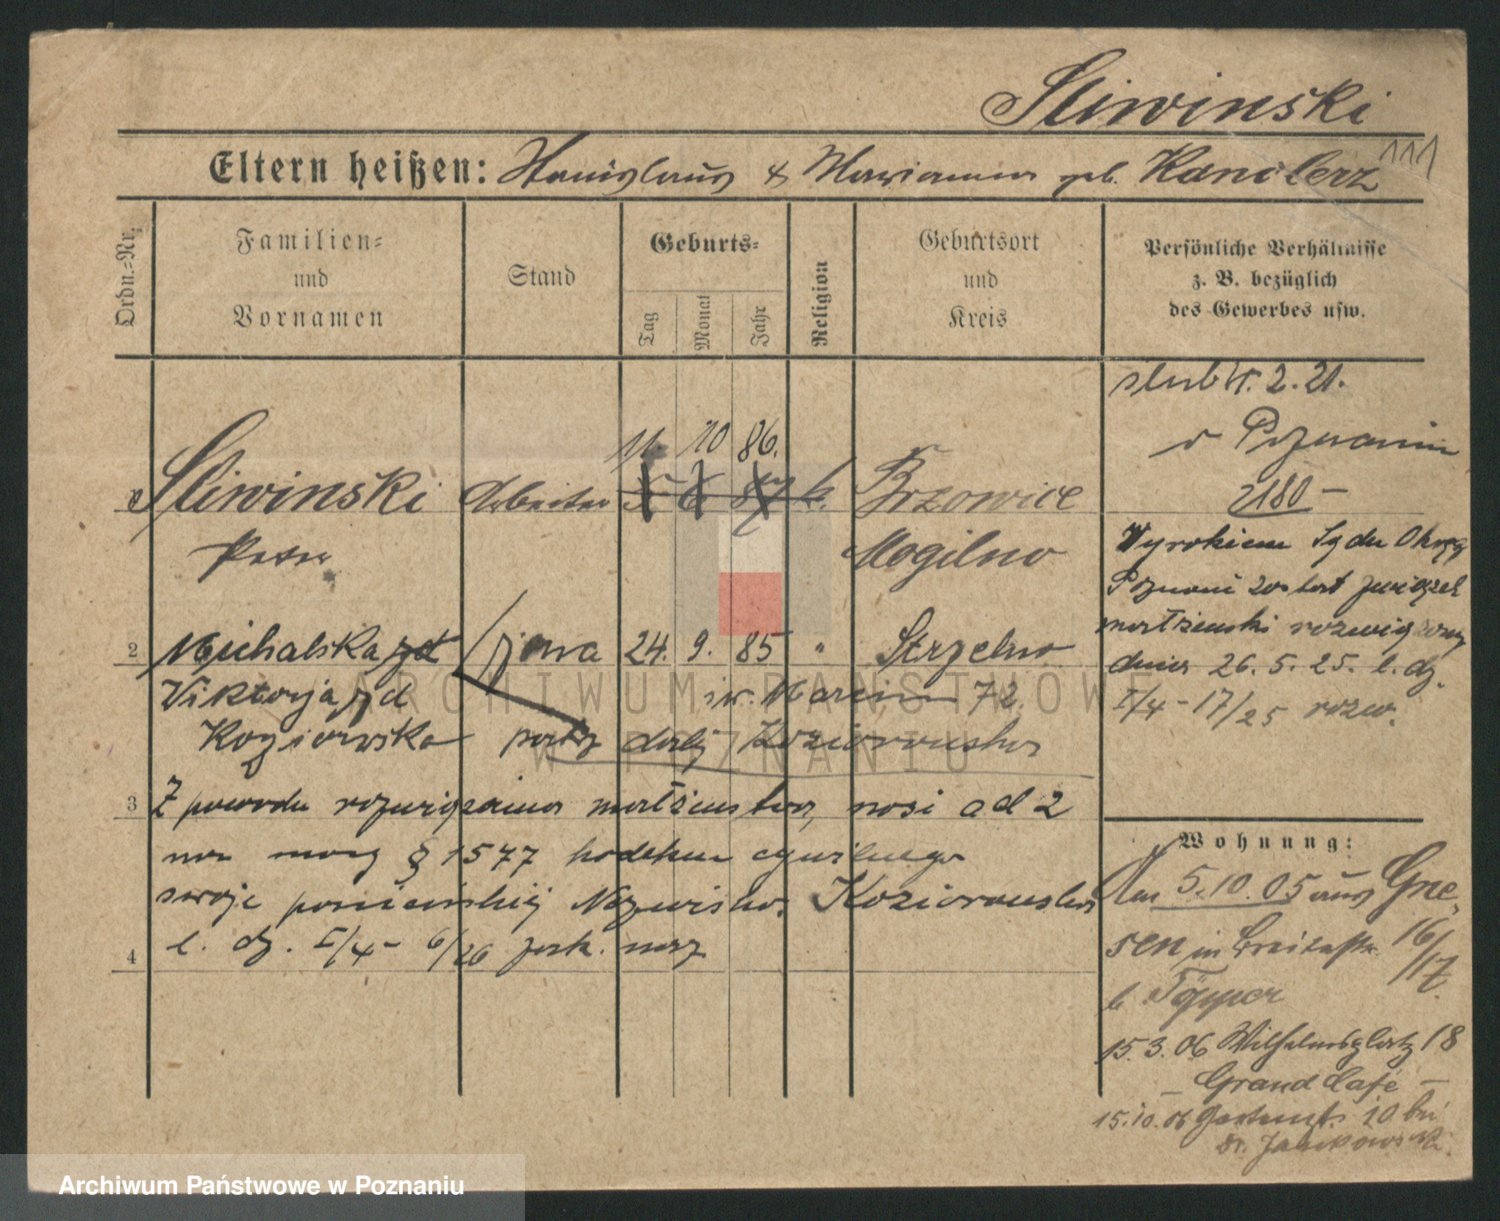 Sliwinski
111
Eltern heißen: Stanislaus & Marianna geb. Kandlerz
Ordn.-Nr.
Familien-
und
Vornamen
Stand
Geburts-
Tag
Monat
Jahr
Religion
Geburtsort
und
Kreis
Persönliche Verhältnisse
z. B. bezüglich
des Gewerbes usw.
ślub 2. 21.
v Poznaniu
2180 -
11. 10 86.
Sliwinski Arbeiter 5 6 87 k. Brzowice
Peter Mogilno
Wyrokiem Sądu Okręg
Poznań został związek
małżeński rozwiązany
dnia 26. 5. 25. l. dz.
I/4 - 17/25 rozw.
2 Michalska zd żona 24. 9. 85 " Strzelno
Wiktorja zd św. Marcin 72.
Koziorowska patrz dalej Koziorowska
3 Z powodu rozwiązania małżeństwa, nosi od 2
na mocy § 1577 kodeksu cywilnego
swoje panieńskie Nazwisko Koziorowska
4 l. dz. I/4 - 6/26
Wohnung:
Am 5.10.05 aus Gne-
sen in Breitestr. 16/17
b Töpper
15.3.06 Wilhelmsplatz 18
- Grand Café -
15.10.06 Gartenstr. 10 bei
Dr. Jankowski.
ARCHIWUM PAŃSTWOWE
W POZNANIU
Archiwum Państwowe w Poznaniu